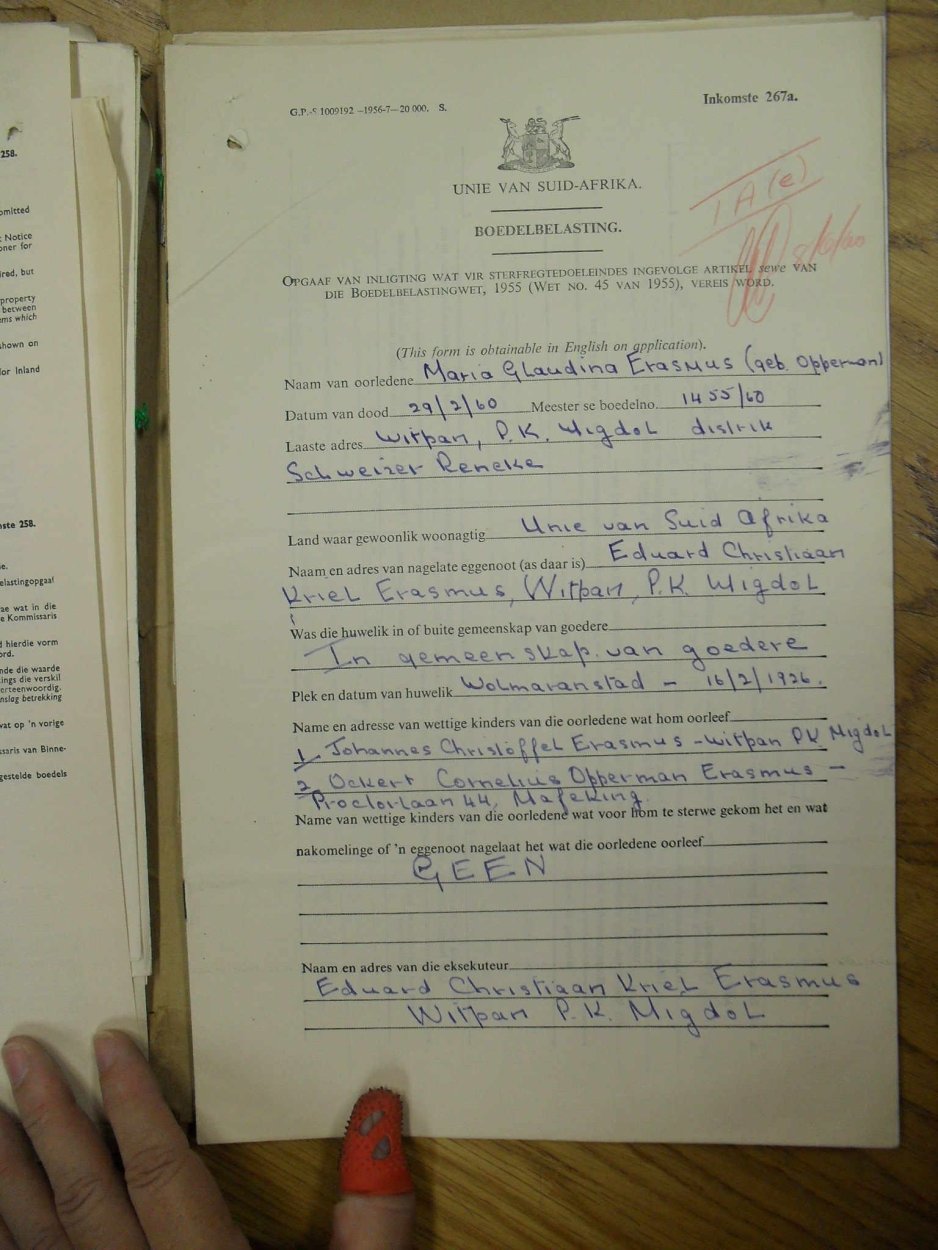 258.
omitted
Notice
oner for
ired, but
property
between
ems which
shown on
or Inland
nste 258.
e.
elastingopgaaf
ae wat in die
e Kommissaris
d hierdie vorm
ord.
nde die waarde
kings die verskil
erteenwoordig.
nslag betrekking
wat op 'n vorige
ssaris van Binne-
gestelde boedels
G.P.-S 1009192 —1956-7—20 000. S.
Inkomste 267a.
UNIE VAN SUID-AFRIKA.
BOEDELBELASTING.
IA(e)
OPGAAF VAN INLIGTING WAT VIR STERFREGTEDOELEINDES INGEVOLGE ARTIKEL sewe VAN
DIE BOEDELBELASTINGWET, 1955 (WET NO. 45 VAN 1955), VEREIS WORD.
(This form is obtainable in English on application).
Naam van oorledene Maria Glaudina Erasmus (geb. Opperman)
Datum van dood 29/2/60 Meester se boedelno. 1455/60
Laaste adres Witpan, P.K. Migdol distrik
Schweizer Reneke
Land waar gewoonlik woonagtig Unie van Suid Afrika
Naam en adres van nagelate eggenoot (as daar is) Eduard Christiaan
Kriel Erasmus, Witpan, P.K. Migdol
Was die huwelik in of buite gemeenskap van goedere
In gemeenskap van goedere
Plek en datum van huwelik Wolmaranstad - 16/2/1926.
Name en adresse van wettige kinders van die oorledene wat hom oorleef
1. Johannes Christoffel Erasmus - Witpan PK Migdol
2. Ockert Cornelius Opperman Erasmus -
Proctorlaan 44, Mafeking.
Name van wettige kinders van die oorledene wat voor hom te sterwe gekom het en wat
nakomelinge of 'n eggenoot nagelaat het wat die oorledene oorleef
GEEN
Naam en adres van die eksekuteur
Eduard Christiaan Kriel Erasmus
Witpan P.K. Migdol